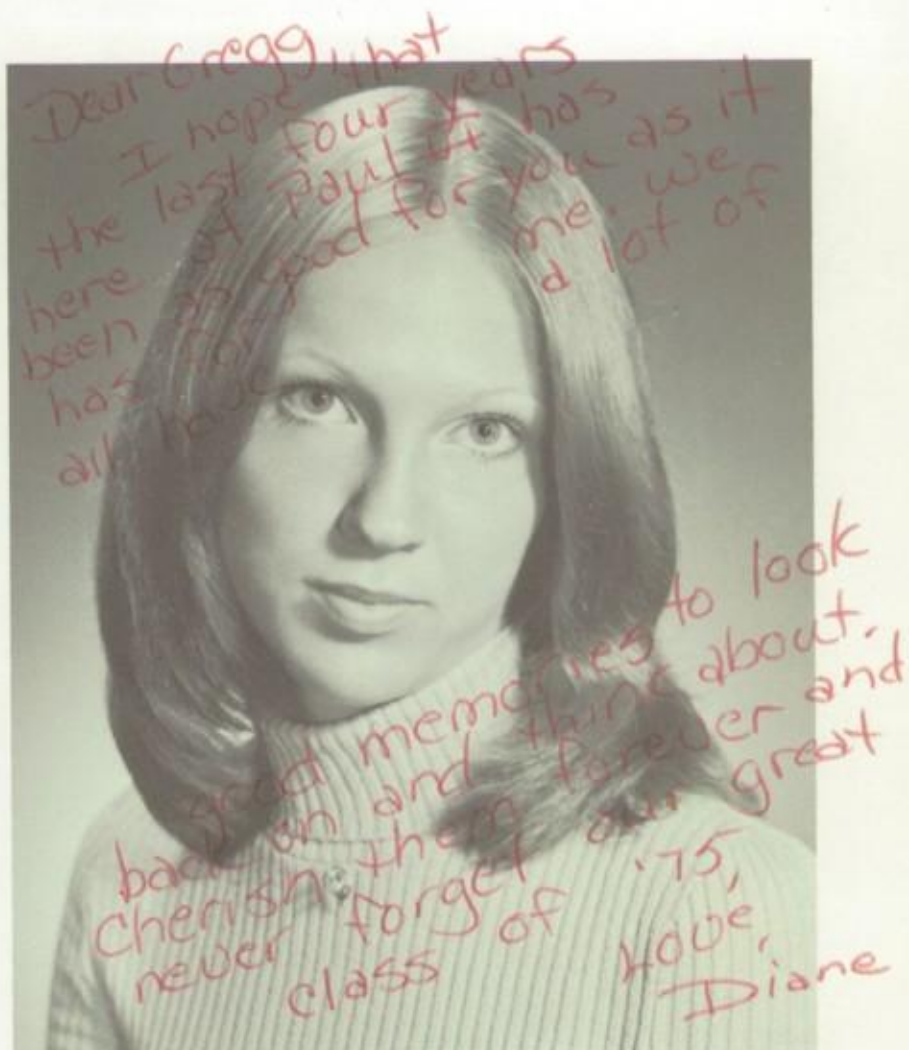 Dear Gregg,
I hope that
the last four years
here at Paul VI has
been as good for you as it
has for me. we
all have a lot of
good memories to look
back on and think about.
Cherish them forever and
never forget our great
class of '75,
Love,
Diane